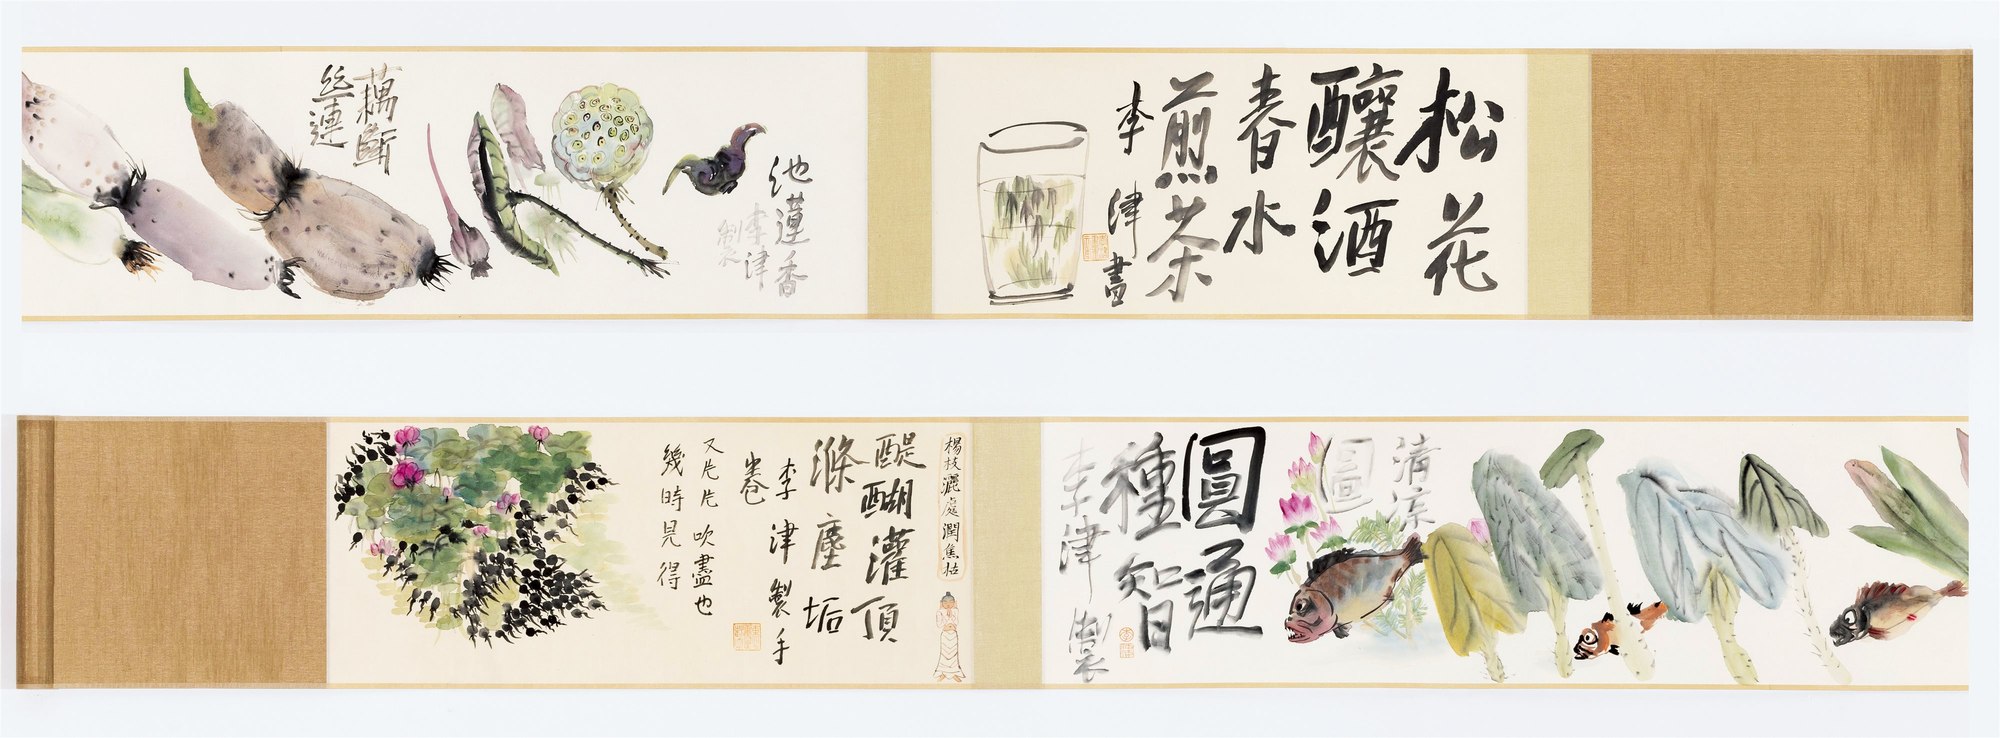 松花
釀酒
春水
煎茶
李津書
池蓮香
李津
製
藕斷
丝連
清凉
圖
圓通
種智
李津製
楊枝灑處潤焦枯
醍醐灌頂
滌塵垢
李津製手
卷
又片片吹盡也
幾時見得